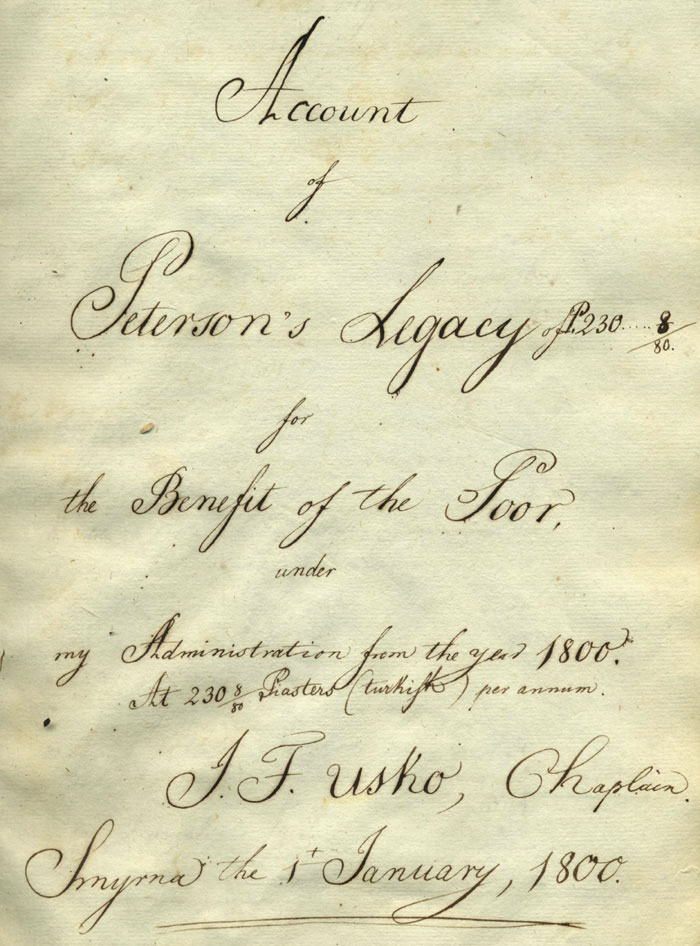 Account
of
Peterson's Legacy of P. 230..... 8/80.
for
the Benefit of the Poor,
under
my Administration from the year 1800.
At 230 8/80 Piasters (turkish) per annum.
J. F. Usko, Chaplain.
Smyrna the 1t January, 1800.